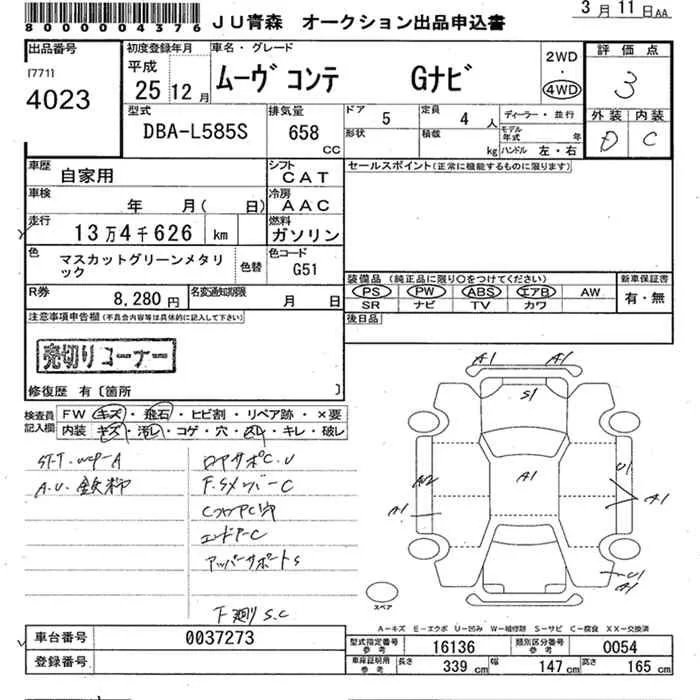 8000004376 JU青森 オークション出品申込書 3月11日AA
出品番号 [771] 4023
初度登録年月 平成25 12月
車名・グレード ムーヴ コンテ Gナビ
2WD・4WD
評価点 3
外装 D 内装 C
型式 DBA-L585S
排気量 658 CC
ドア 5
定員 4人
ディーラー・並行
形状
積載 kg
モデル年式 年
ハンドル 左・右
車歴 自家用
シフト CAT
セールスポイント(正常に機能するものに限ります)
車検 年 月( 日)
冷房 AAC
走行 13万4千626 km
燃料 ガソリン
色 マスカットグリーンメタリック
色替
色コード G51
装備品(純正品に限り○をつけてください)
新車保証書
PS PW ABS エアB AW
有・無
SR ナビ TV カワ
R券 8,280円
名変通知期限 月 日
後日品
注意事項申告欄(不具合内容等は具体的に記入して下さい)
売切りコーナー
修復歴 有〔箇所 〕
検査員記入欄
FW キズ・飛石・ヒビ割・リペア跡・×要
内装 キズ・汚レ・コゲ・穴・スレ・キレ・破レ
A1 A1
S1
A1
A2
A1
U1
A1
U1
A1
ロアサポC.U
F.SメンバーC
エンドアーC
アッパーサポートS
下廻りS.C
スペア
A-キズ E-エクボ U-凹み W-補修跡 S-サビ C-腐食 XX-交換済
車台番号 0037273
登録番号
型式指定番号参考 16136
類別区分番号参考 0054
車庫証明用参考 長さ 339cm 幅 147cm 高さ 165cm